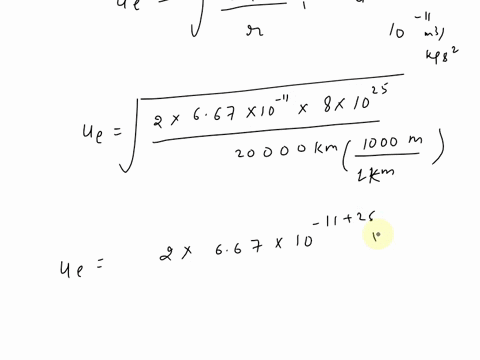 r
10^-11 m3/
kgs^2
u_e = √ 2 × 6.67 × 10^-11 × 8 × 10^25
20000 km ( 1000 m / 1 km )
u_e = 2 × 6.67 × 10^-11+25